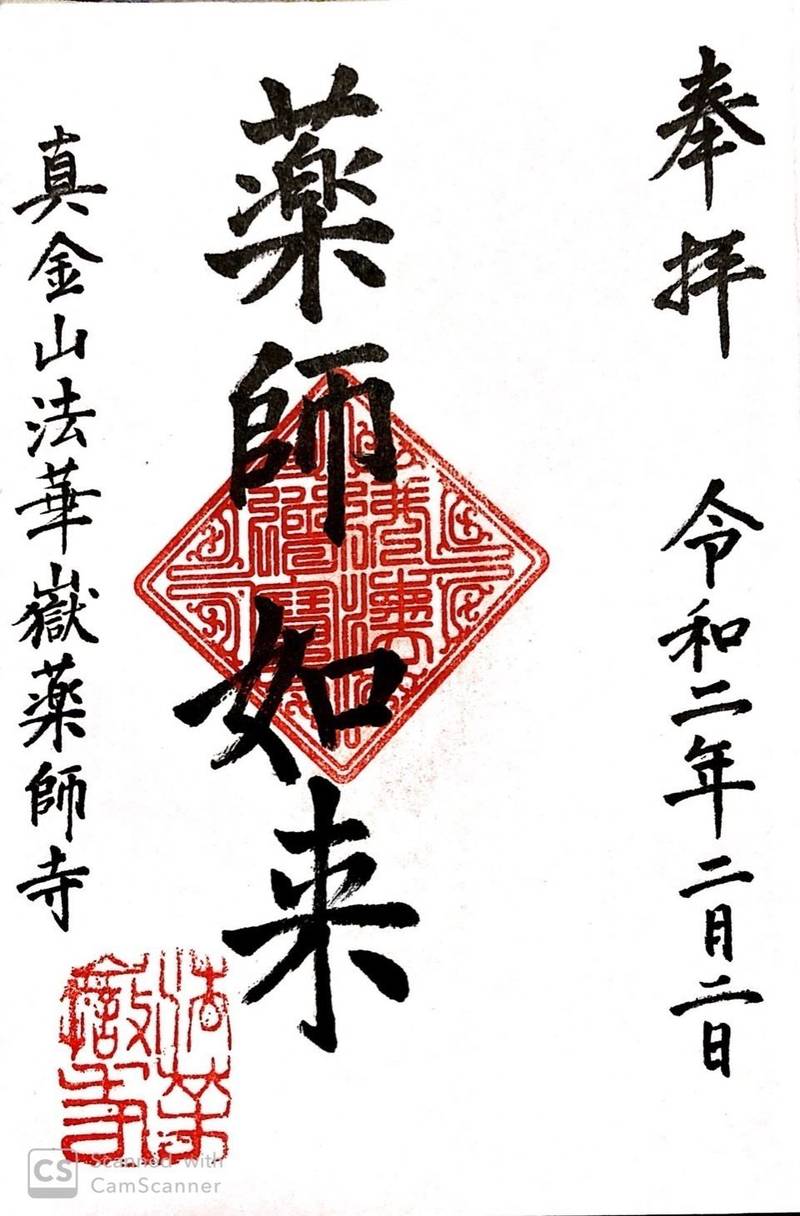 奉拝
令和二年二月二日
薬師如来
真金山法華嶽薬師寺
CS Scanned with
CamScanner